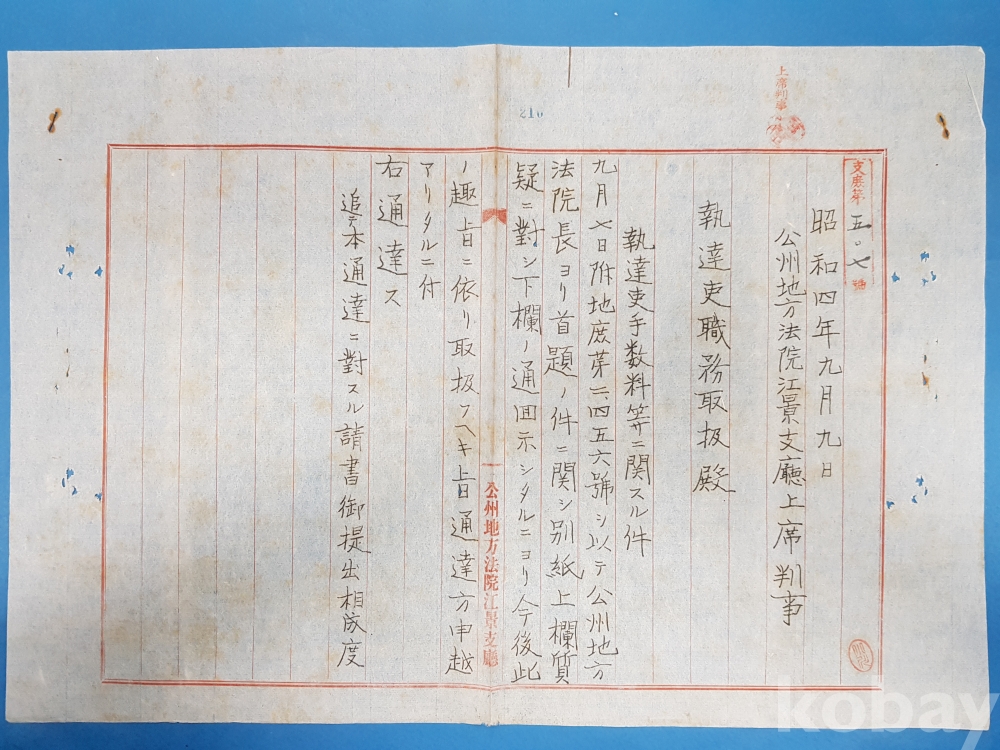 216
上席判事
支庶第五〇七號
昭和四年九月九日
公州地方法院江景支廳上席判事
執達吏職務取扱殿
執達吏手数料等ニ関スル件
九月七日附地庶第一、四五六號ヲ以テ公州地方
法院長ヨリ首題ノ件ニ関シ別紙上欄質
疑ニ對シ下欄ノ通囬示シタルニヨリ今後此
ノ趣旨ニ依リ取扱フヘキ旨通達方申越
アリタルニ付
右通達ス
追テ本通達ニ對スル請書御提出相成度
公州地方法院江景支廳
kobay